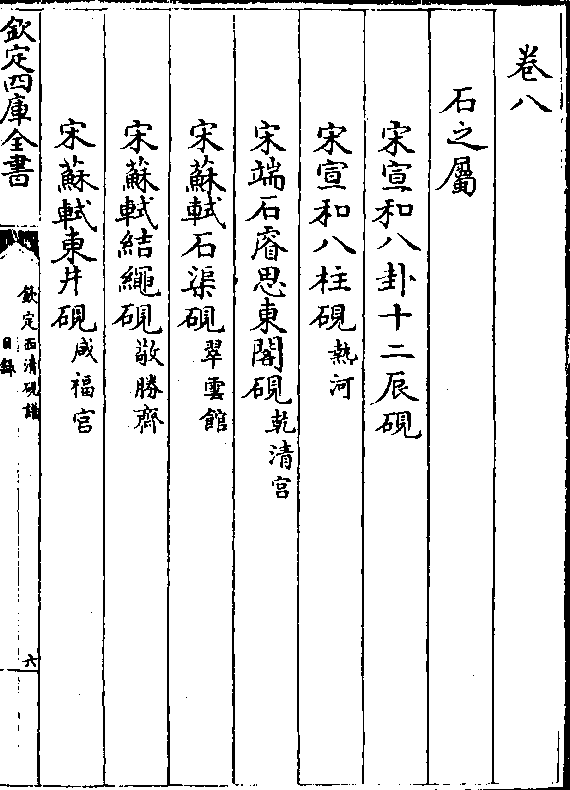 卷八
石之屬
宋宣和八卦十二辰硯
宋宣和八柱硯熱河
宋端石睿思東閣硯乾清宮
宋蘇軾石渠硯翠雲館
宋蘇軾結繩硯敬勝齋
宋蘇軾東井硯咸福宮
欽定四庫全書
欽定西清硯譜
目錄
六